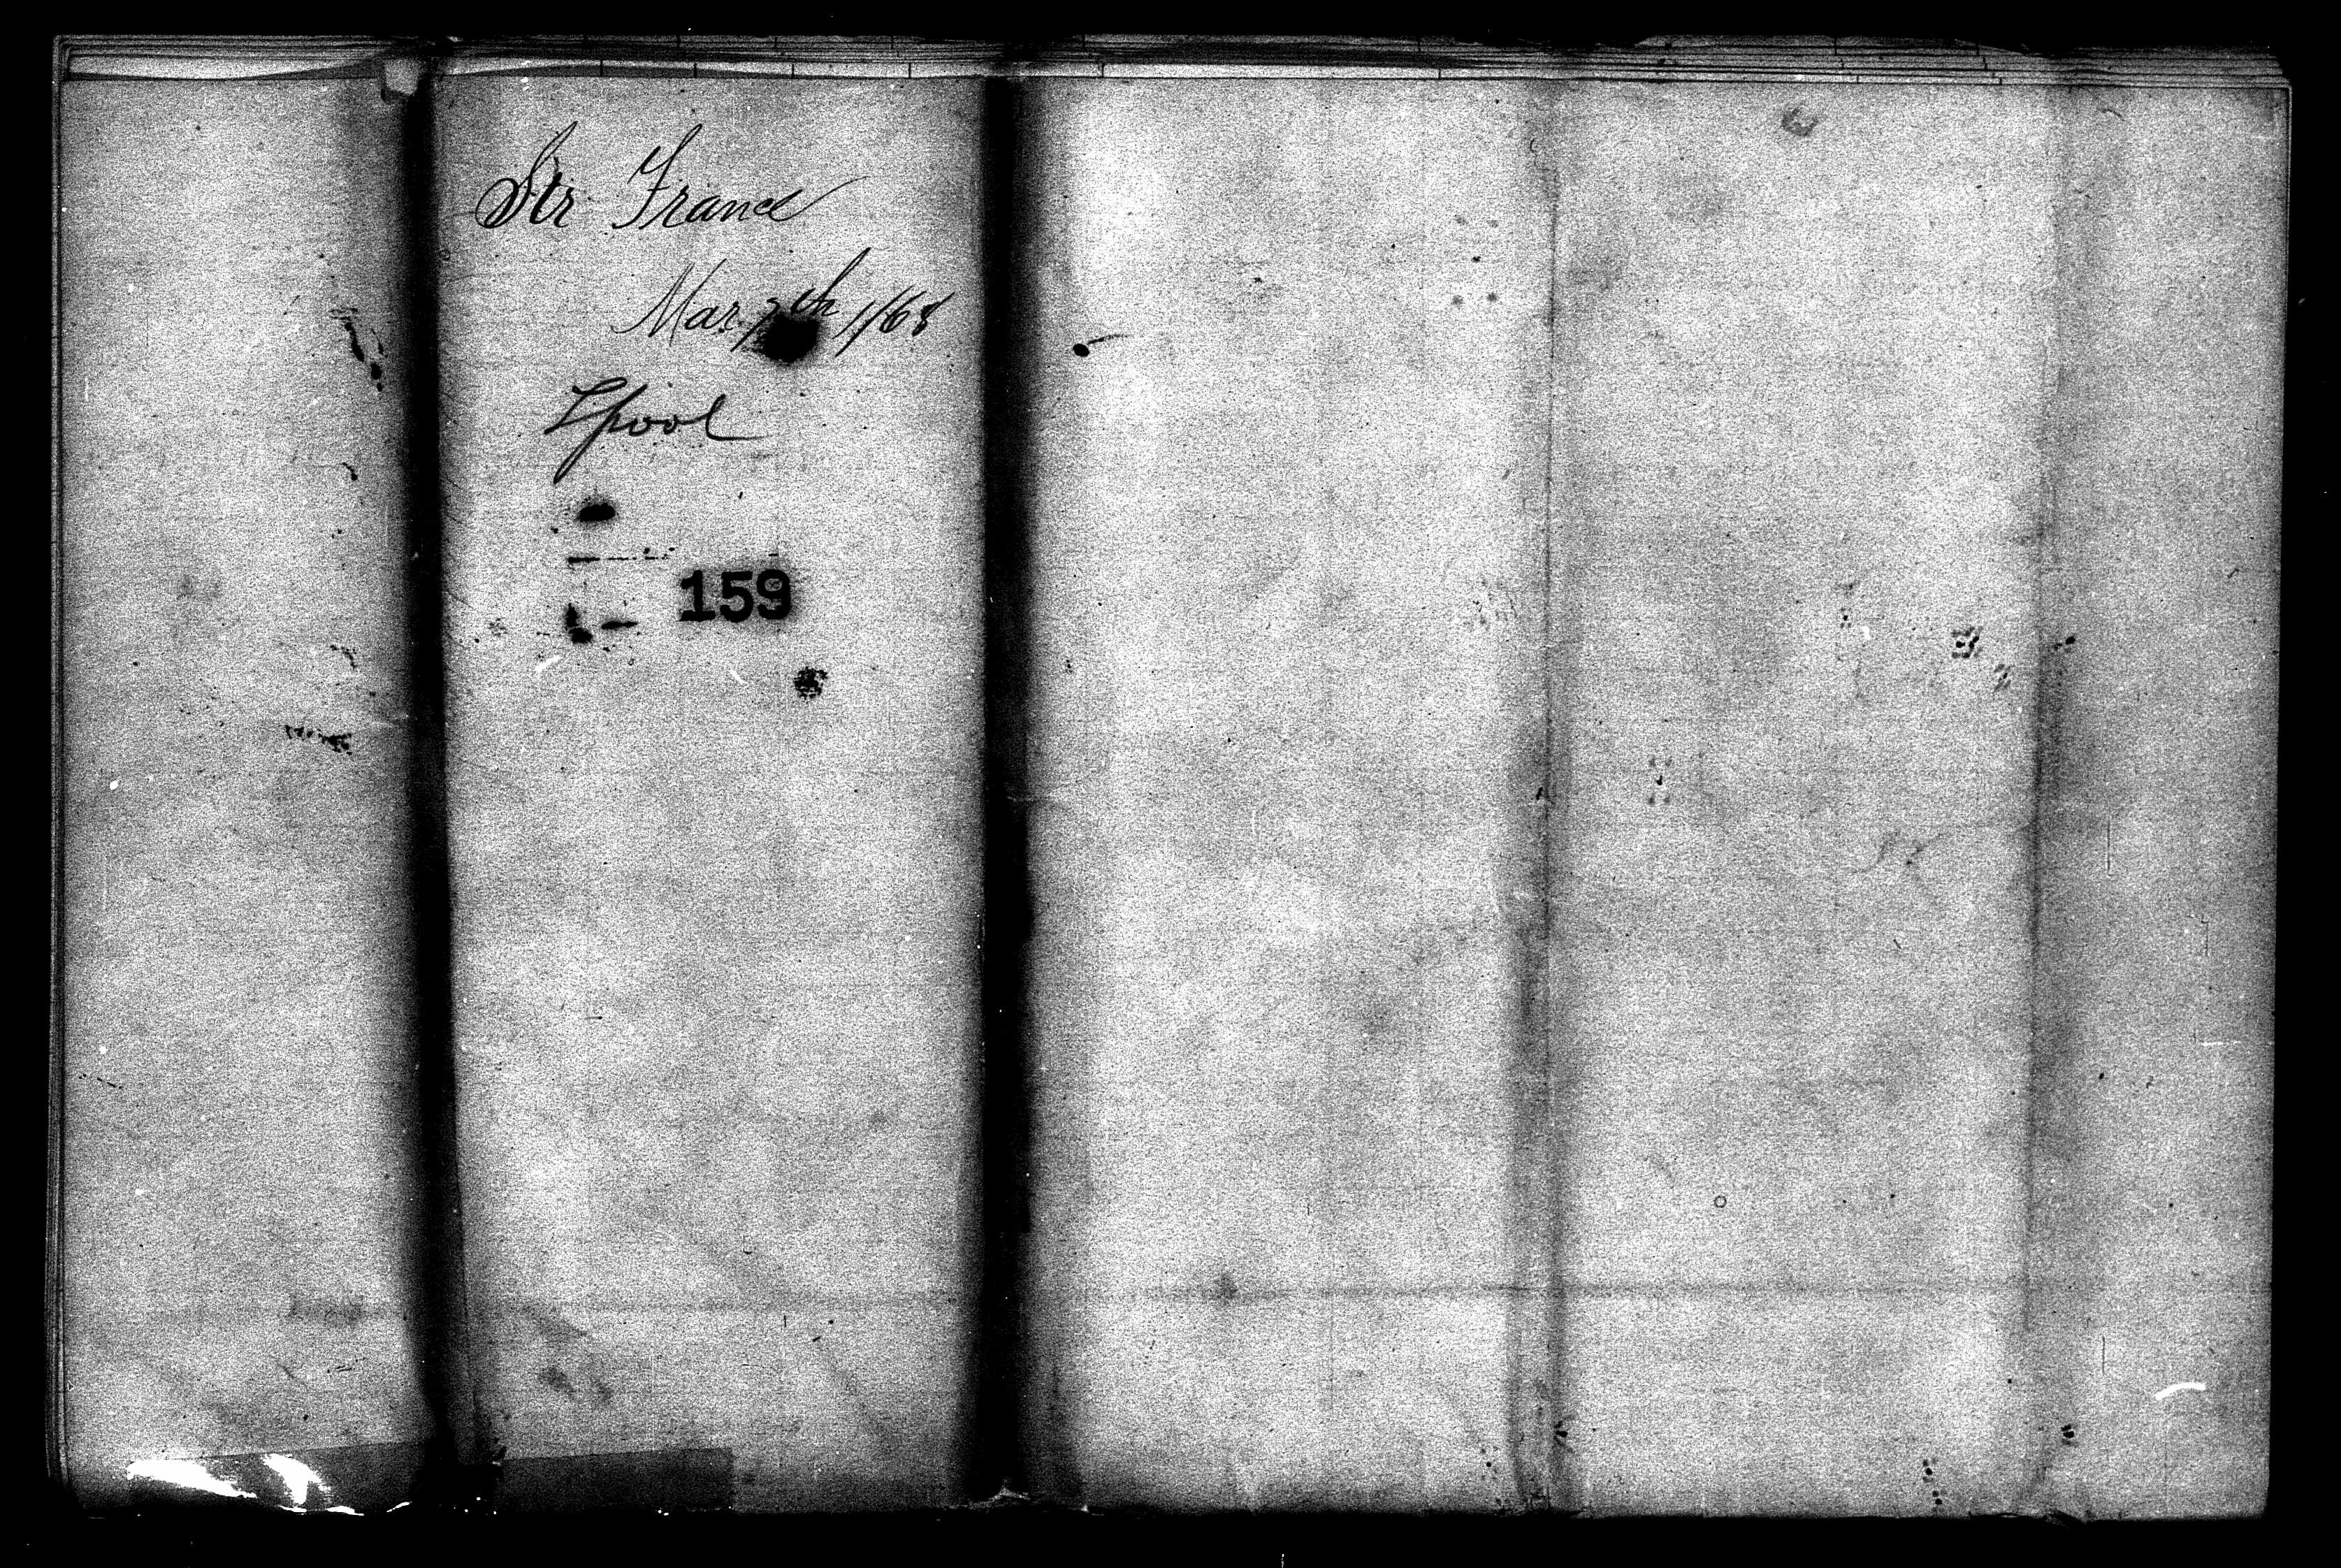 Str France
Mar 7th 1868
Lpool
159